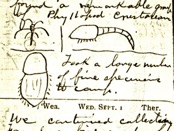 found a remarkable group
Phyllopod Crustaceans
Took a large number
of fine specimens
to camp.
Wea. WED. SEPT. 1 Ther.
We continued collecting